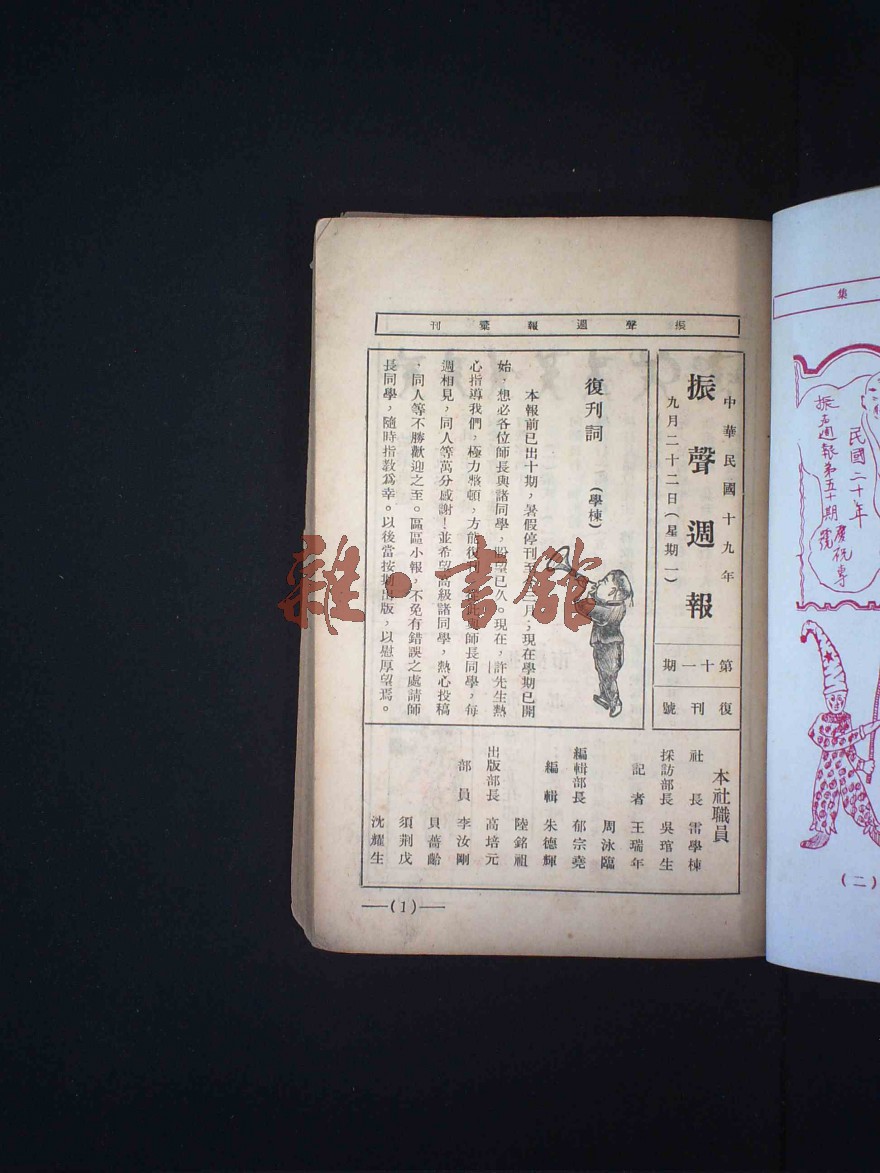 振聲週報彙刊
中華民國十九年
九月二十二日(星期一)
振聲週報
第十一期
復刊號
復刊詞
(學棟)
本報前已出十期,暑假停刊至今三月;現在學期已開
始,想必各位師長與諸同學,盼望已久。現在,許先生熱
心指導我們,極力整頓,方能復刊
師長同學,每
週相見,同人等萬分感謝!並希望高級諸同學,熱心投稿
,同人等不勝歡迎之至。區區小報
不免有錯誤之處請師
長同學,隨時指教爲幸。以後當按期出版,以慰厚望焉。
本社職員
社長 雷學棟
採訪部長 吳琯生
記者 王瑞年
周泳臨
編輯部長 郁宗堯
編輯 朱德輝
陸銘祖
出版部長 高培元
部員 李汝剛
貝蕾齡
須荆戊
沈耀生
(1)
雜·書館
集
民國二十年
振声週報第五十期慶祝專號
(二)